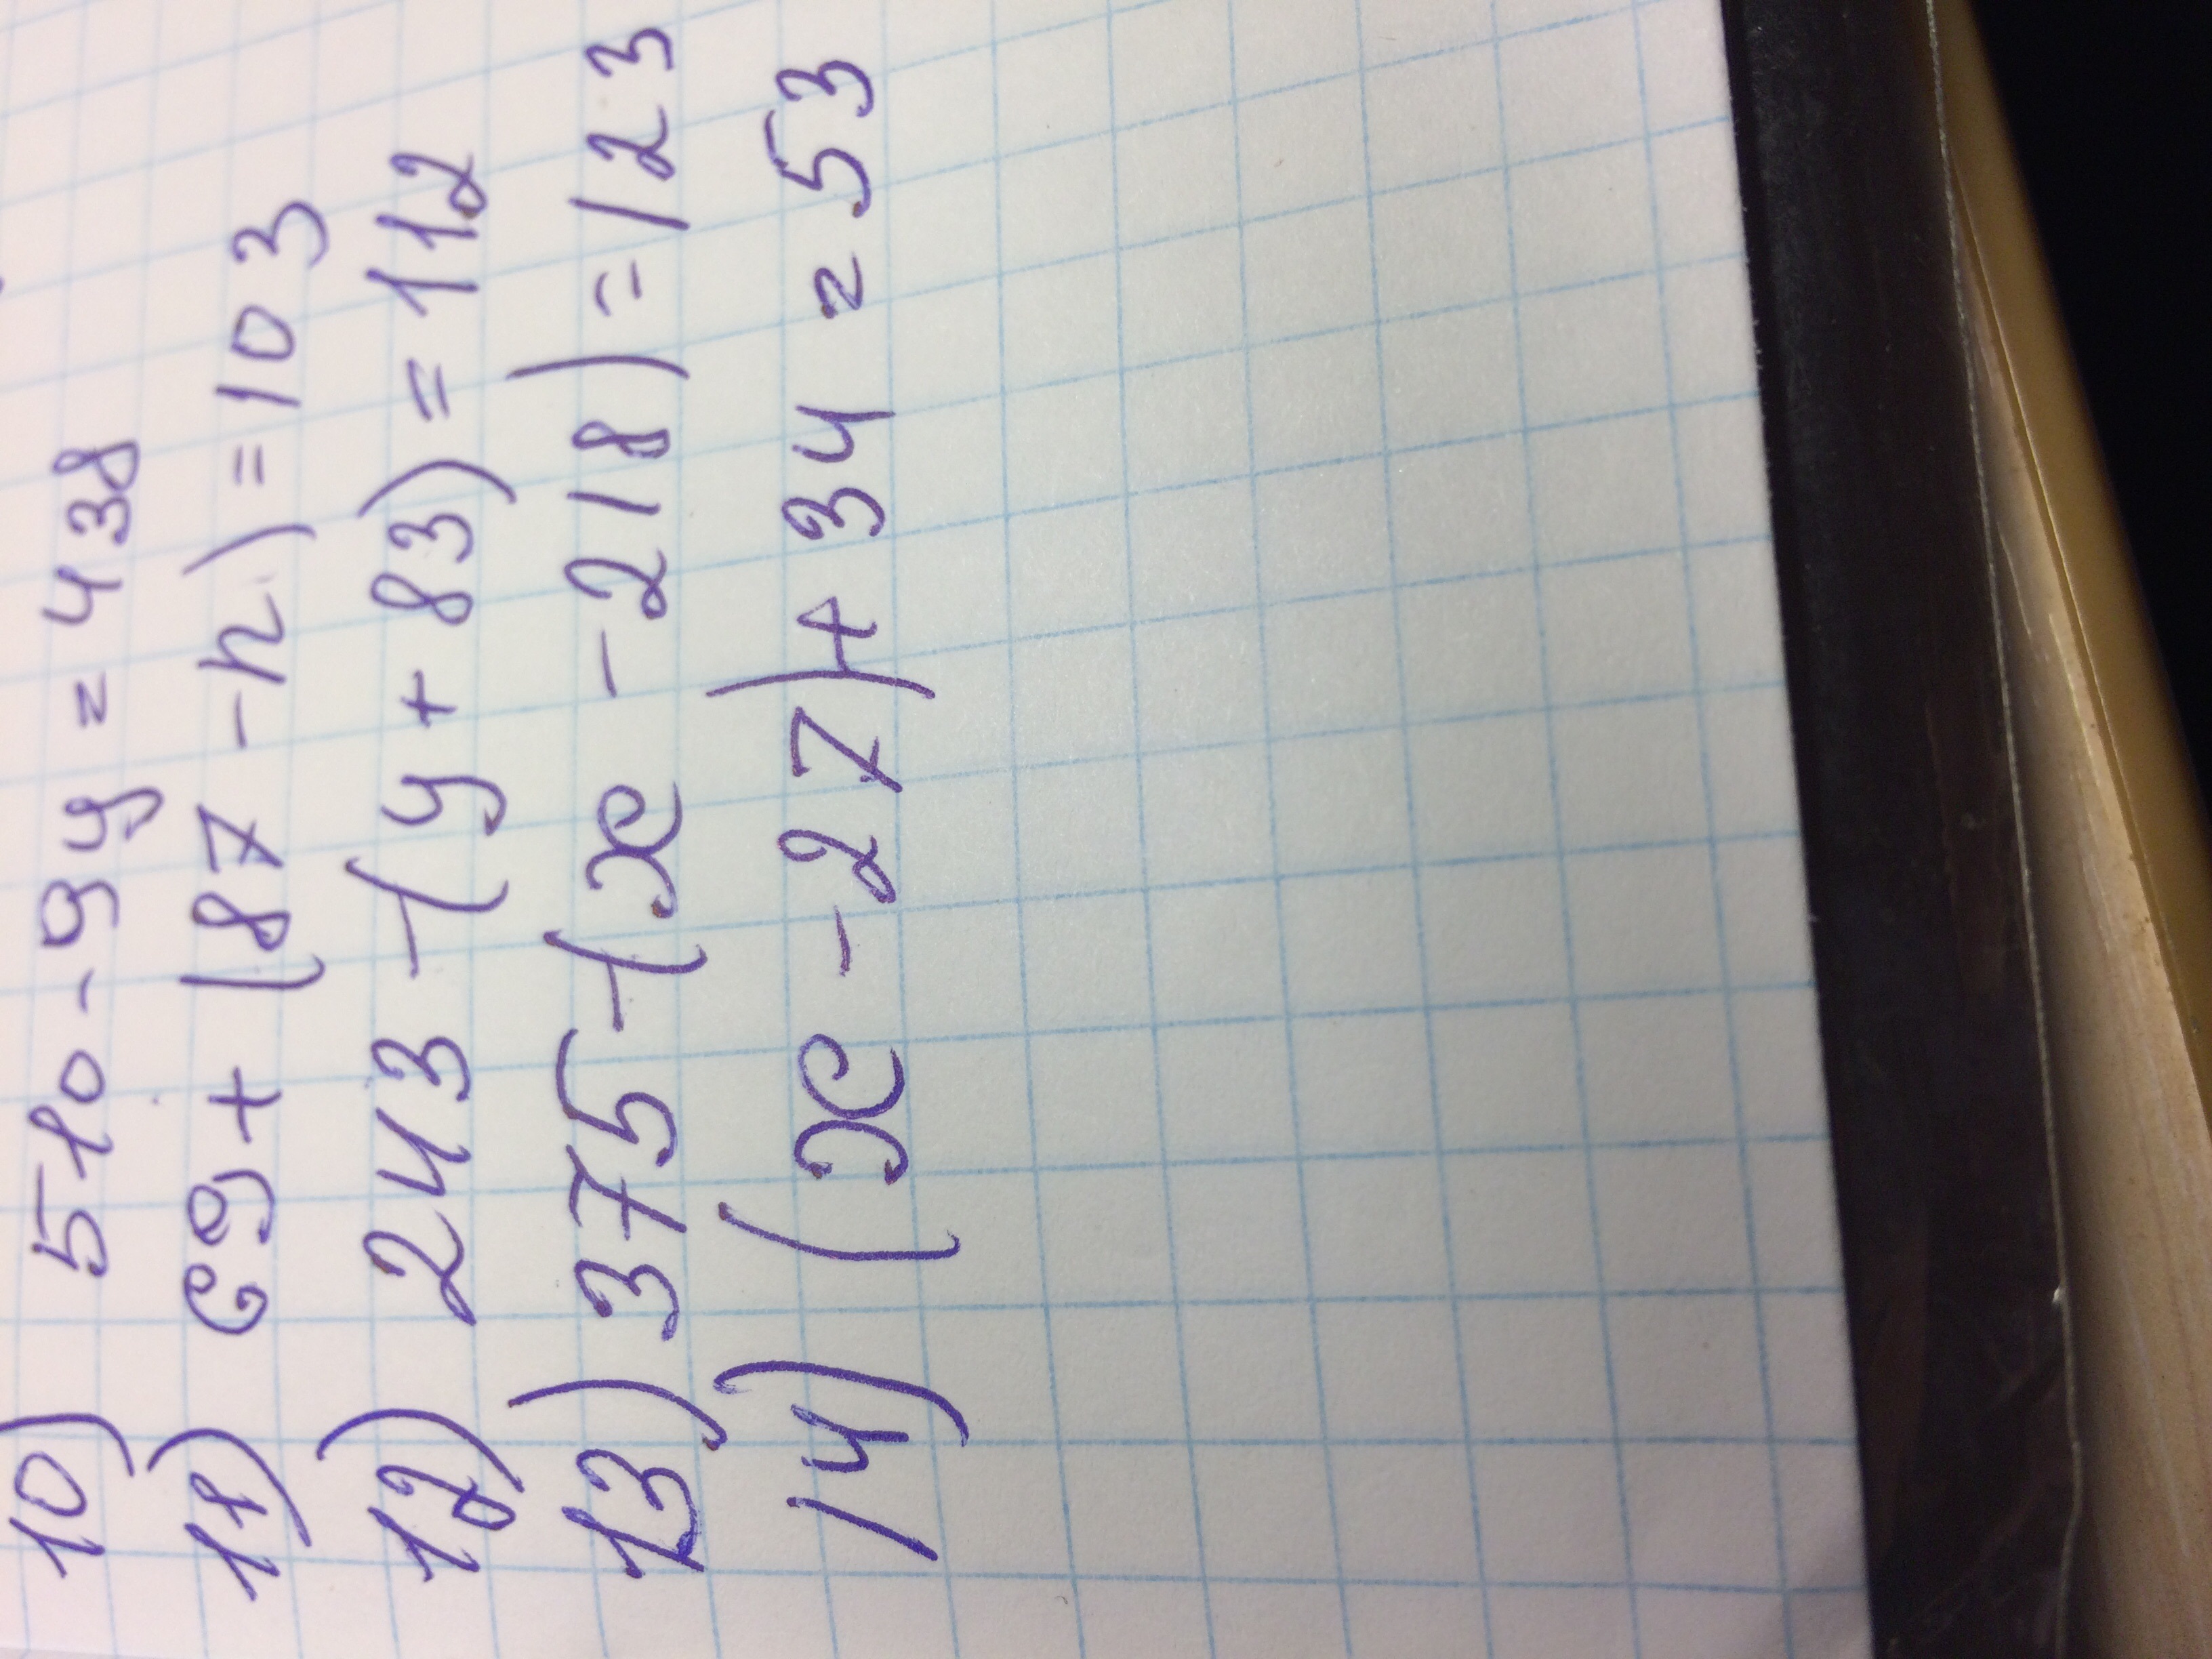 10) 510 - 9y = 438
11) 69 + (87 - n) = 103
12) 243 - (y + 83) = 112
13) 375 - (x - 218) = 123
14) (x - 27) + 34 = 53